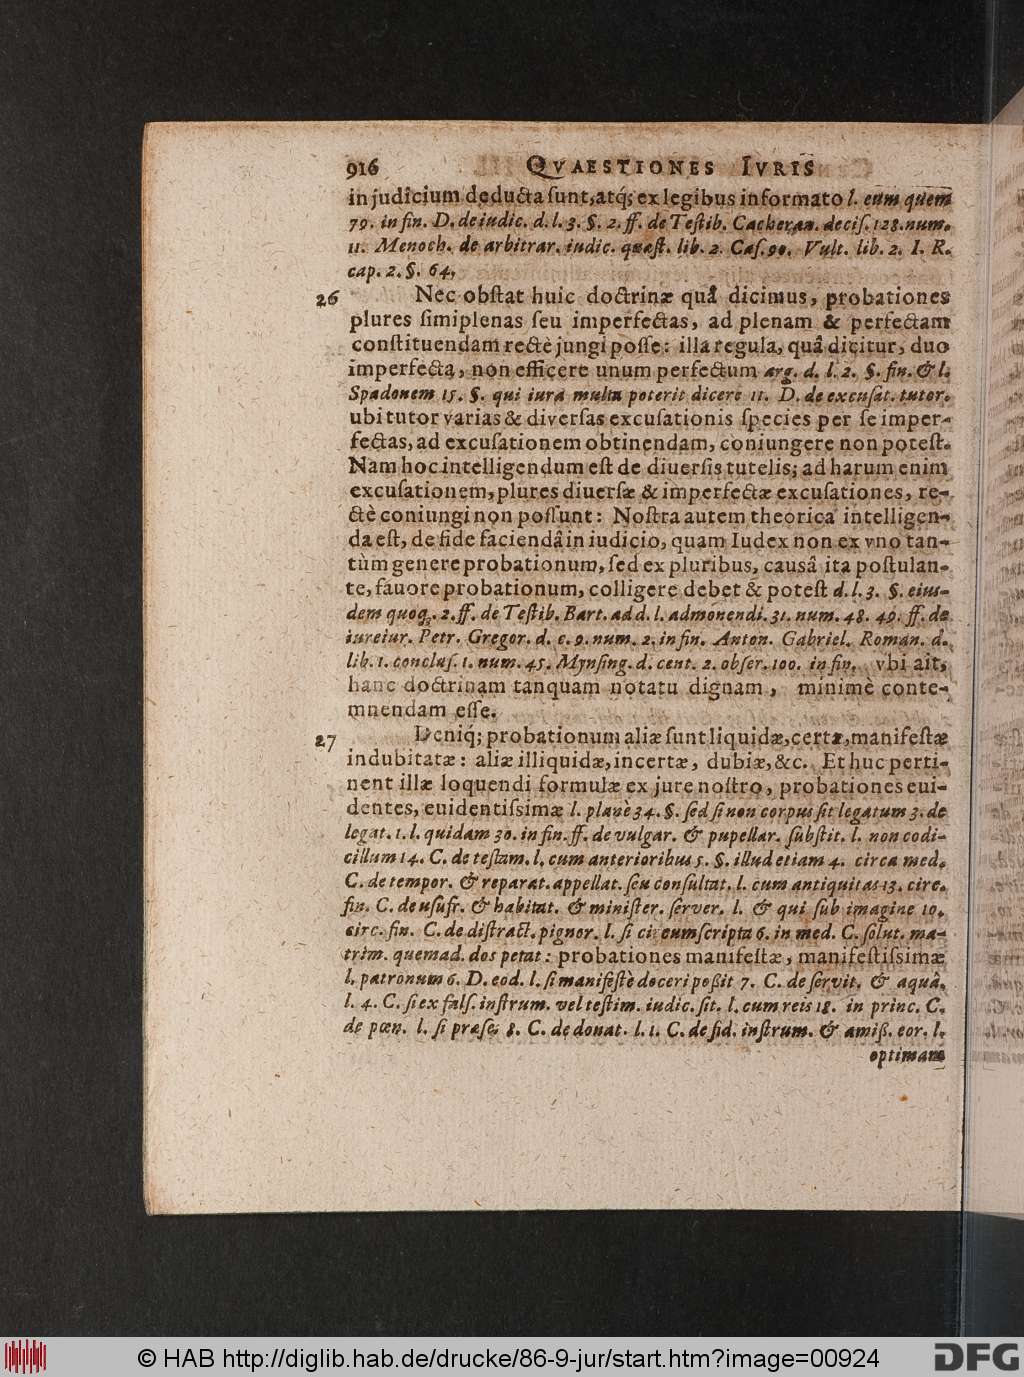 916 QVAESTIONES IVRIS
in judîcium deducta ſunt, atq́; ex legibus informato l. eum quem
79. in fin. D. de iudic. d. l. 3. §. 2. ff. de Teſtib. Cacheran. deciſ. 128. num.
11. Menoch. de arbitrar. iudic. quæſt. lib. 2. Caſ. 90. Vult. lib. 2. I. R.
cap. 2. §. 64,
26 Nec obſtat huic doctrinæ quâ dicimus, probationes
plures ſimiplenas ſeu imperfectas, ad plenam & perfectam
conſtituendam rectè jungi poſſe: illa regula, quâ dicitur, duo
imperfecta, non efficere unum perfectum arg. d. l. 2. §. fin. & l.
Spadonem 15. §. qui iura multa poterit dicere 11. D. de excuſat. tutor.
ubi tutor varias & diverſas excuſationis ſpecies per ſe imper-
fectas, ad excuſationem obtinendam, coniungere non poteſt.
Nam hoc intelligendum eſt de diuerſis tutelis; ad harum enim
excuſationem, plures diuerſæ & imperfectæ excuſationes, re-
ctè coniungi non poſſunt: Noſtra autem theorica intelligen-
da eſt, de fide faciendâ in iudicio, quam Iudex non ex vno tan-
tùm genere probationum, ſed ex pluribus, causâ ita poſtulan-
te, fauore probationum, colligere debet & poteſt d. l. 3. §. eius-
dem quoq;. 2. ff. de Teſtib. Bart. ad d. l. admonendi. 31. num. 48. 49. ff. de
iureiur. Petr. Gregor. d. c. 9. num. 2. in fin. Anton. Gabriel. Roman. d.
lib. 1. concluſ. 1. num. 45. Mynſing. d. cent. 2. obſer. 100. in fin. vbi ait,
hanc doctrinam tanquam notatu dignam, minimè conte-
mnendam eſſe.
27 Deniq́; probationum aliæ ſunt liquidæ, certæ, manifeſtæ
indubitatæ: aliæ illiquidæ, incertæ, dubiæ, &c. Et huc perti-
nent illæ loquendi formulæ ex jure noſtro, probationes eui-
dentes, euidentiſsimæ l. planè 34. §. ſed ſi non corpus ſit legatum 3. de
legat. 1. l. quidam 30. in fin. ff. de vulgar. & pupellar. ſubſtit. l. non codi-
cillum 14. C. de teſtam. l. cum anterioribus 5. §. illud etiam 4. circa med.
C. de tempor. & reparat. appellat. ſeu conſultat. l. cum antiquitas 13. circ.
fin. C. de uſufr. & habitat. & miniſter. ſerver. l. & qui ſub imagine 10.
circ. fin. C. de diſtract. pignor. l. ſi circumſcripta 6. in med. C. ſolut. ma-
trim. quemad. dos petat: probationes manifeſtæ, manifeſtiſsimæ
l. patronum 6. D. eod. l. ſi manifeſtè doceri poßit 7. C. de ſervit. & aquâ.
l. 4. C. ſi ex falſ. inſtrum. vel teſtim. iudic. ſit. l. cum reis 18. in princ. C.
de pœn. l. ſi præſes 8. C. de donat. l. 1. C. de fid. inſtrum. & amiß. eor. l.
optimam
© HAB http://diglib.hab.de/drucke/86-9-jur/start.htm?image=00924 DFG